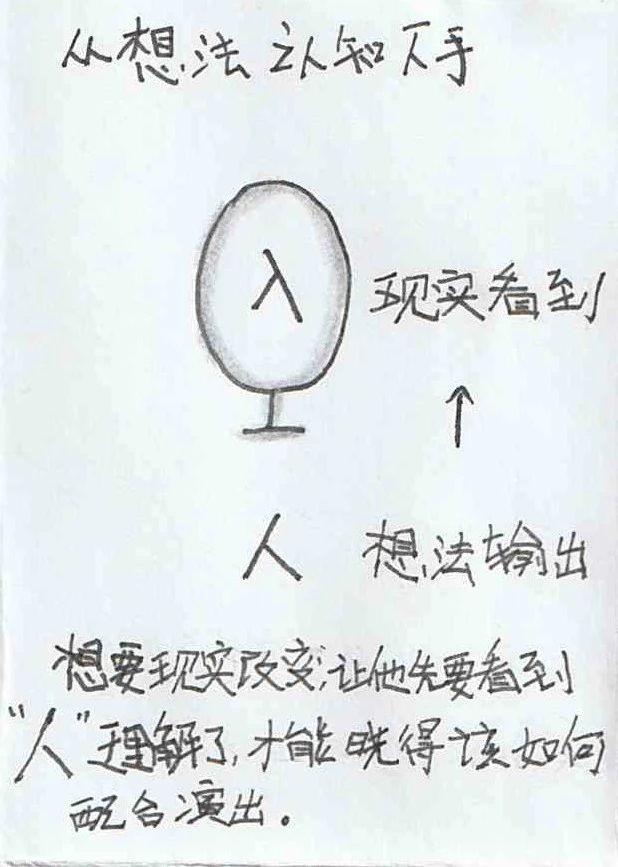 从想法认知下手
入
现实看到
↑
人 想法输出
想要现实改变,让他先要看到
“人”理解了,才能晓得该如何
配合演出。